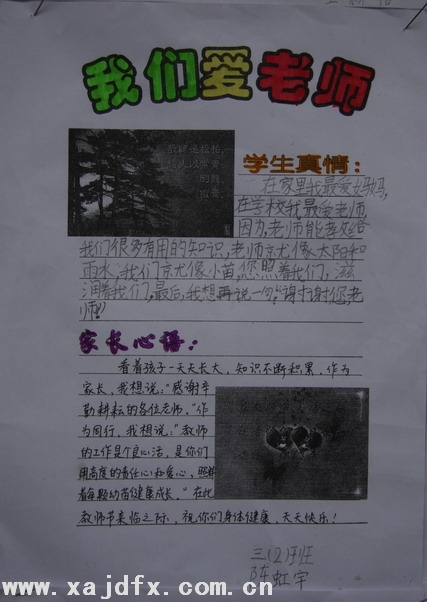 我们爱老师
学生真情：
在家里我最爱妈妈，
在学校我最爱老师，
因为，老师能教给
我们很多有用的知识，老师就像太阳和
雨水，我们就像小苗，您照着我们，滋
润着我们，最后，我想再说一句：“谢谢您，老
师！”
家长心语：
看着孩子一天天长大，知识不断积累，作为
家长，我想说：“感谢辛
勤耕耘的各位老师，”作
为同行，我想说：“教师
的工作是个良心活，是你们
用高度的责任心和爱心，照耀
着每颗幼苗健康成长。”在此
教师节来临之际，祝你们身体健康，天天快乐！
三(2)班
陈虹宇
www.xajdfx.com.cn